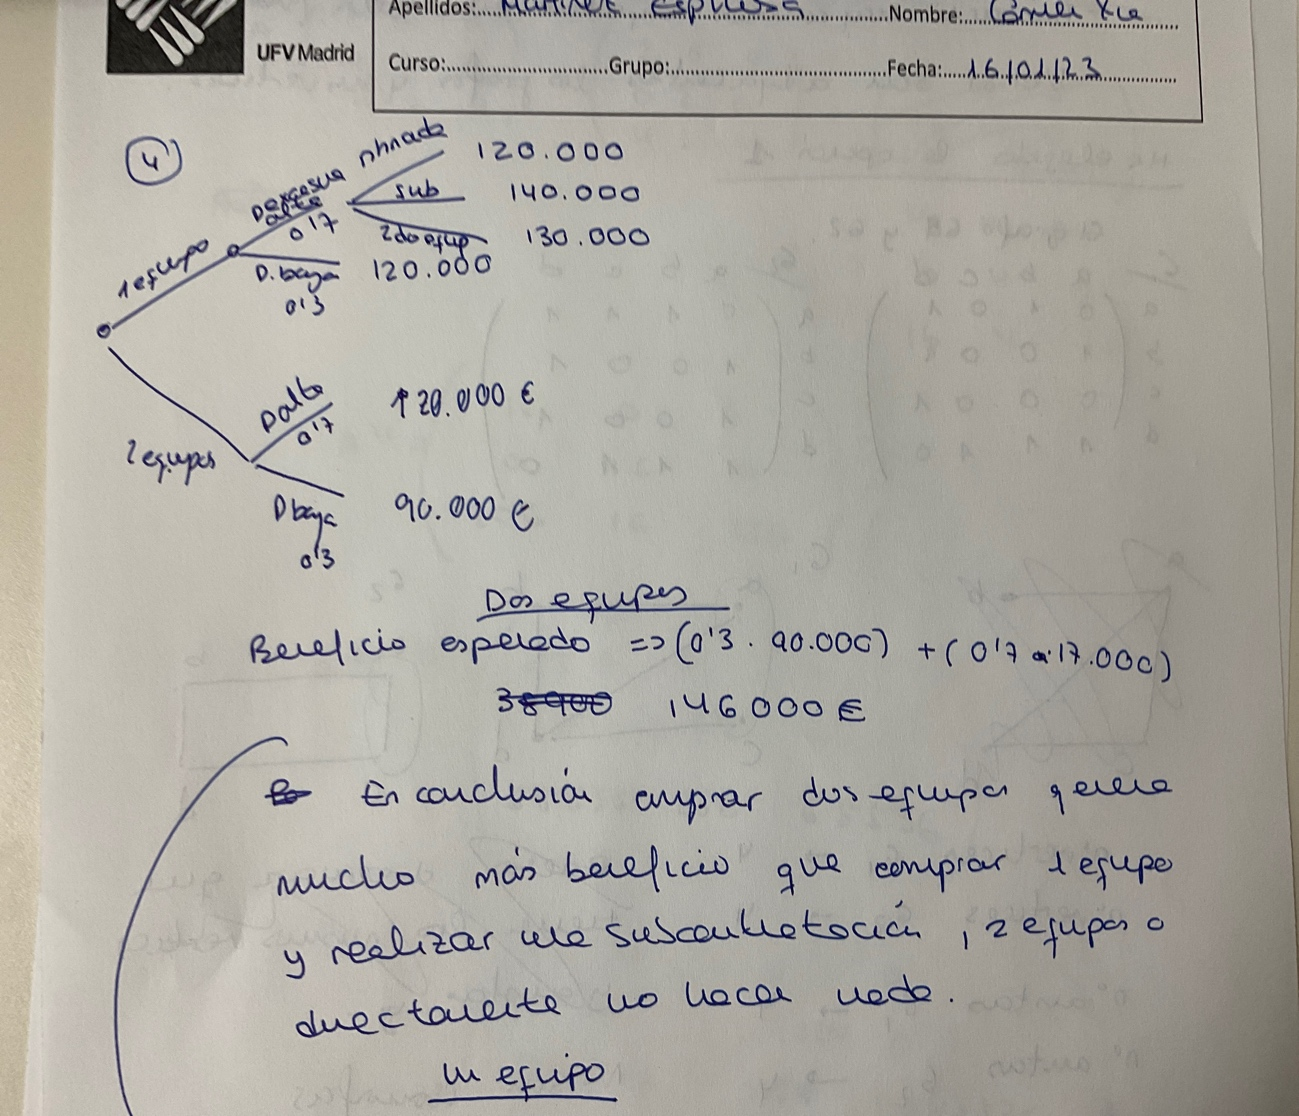 UFV Madrid
Apellidos: Martínez Espinosa Nombre:
Curso: Grupo: Fecha: 16/01/23
4
1 equipo
D alta
0'7
nhnada 120.000
sub 140.000
2do equip 130.000
D. baja 120.000
0'3
2 equipos
D alta 120.000 €
0'7
D baja 90.000 €
0'3
Dos equipos
Beneficio esperado => (0'3 . 90.000) + (0'7 . 17.000)
146000 €
En conclusión comprar dos equipos genera
mucho más beneficio que comprar 1 equipo
y realizar una subcontratación, 2 equipos o
directamente no hacer nada.
un equipo